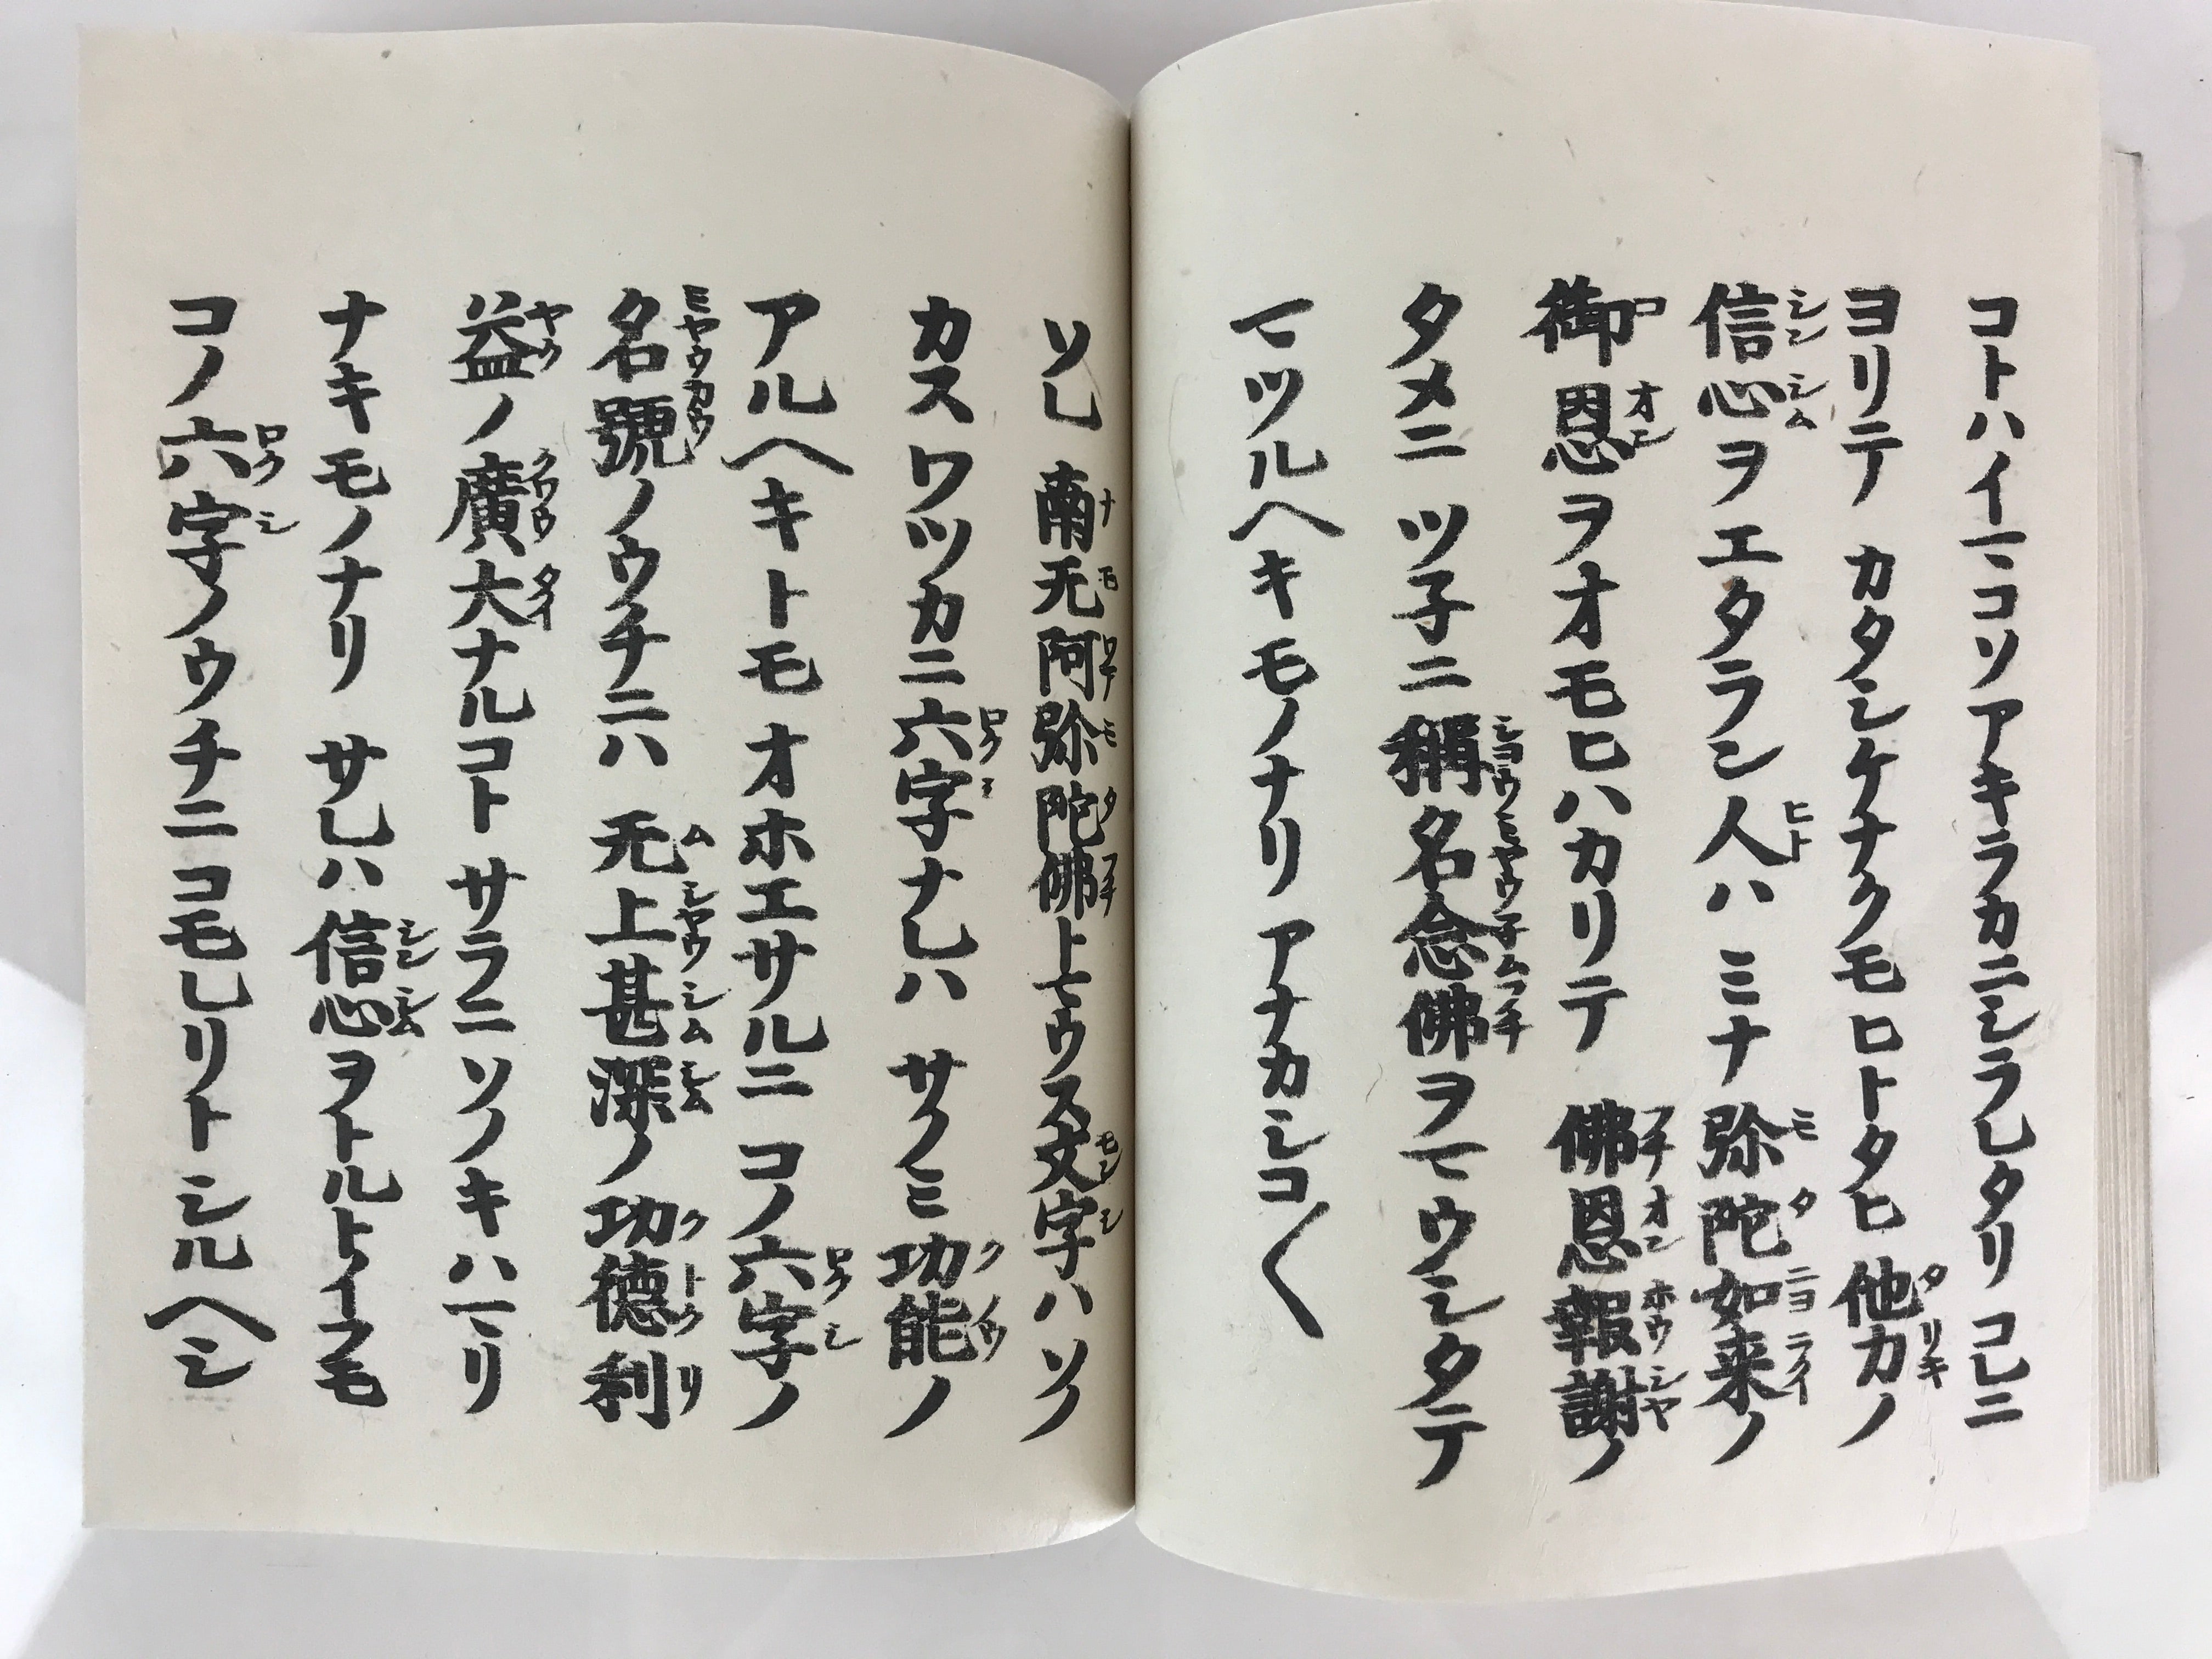 コトハイマコソアキラカニシラレタリ コレニ
ヨリテ カタシケナクモヒトタヒ 他力ノ
信心ヲエタラン人ハ ミナ 弥陀如来ノ
御恩ヲオモヒハカリテ 佛恩報謝ノ
タメニ ツ子ニ 稱名念佛ヲマウシタテ
マツルヘキモノナリ アナカシコ〱
ソレ 南无阿弥陀佛トマウス文字ハ ソノ
カスワツカニ六字ナレハ サノミ 功能ノ
アルヘキトモ オホエサルニ コノ六字ノ
名號ノウチニハ 无上甚深ノ 功德利
益ノ廣大ナルコト サラニソノキハマリ
ナキモノナリ サレハ 信心ヲトルトイフモ
コノ六字ノウチニコモレリトシルヘシ